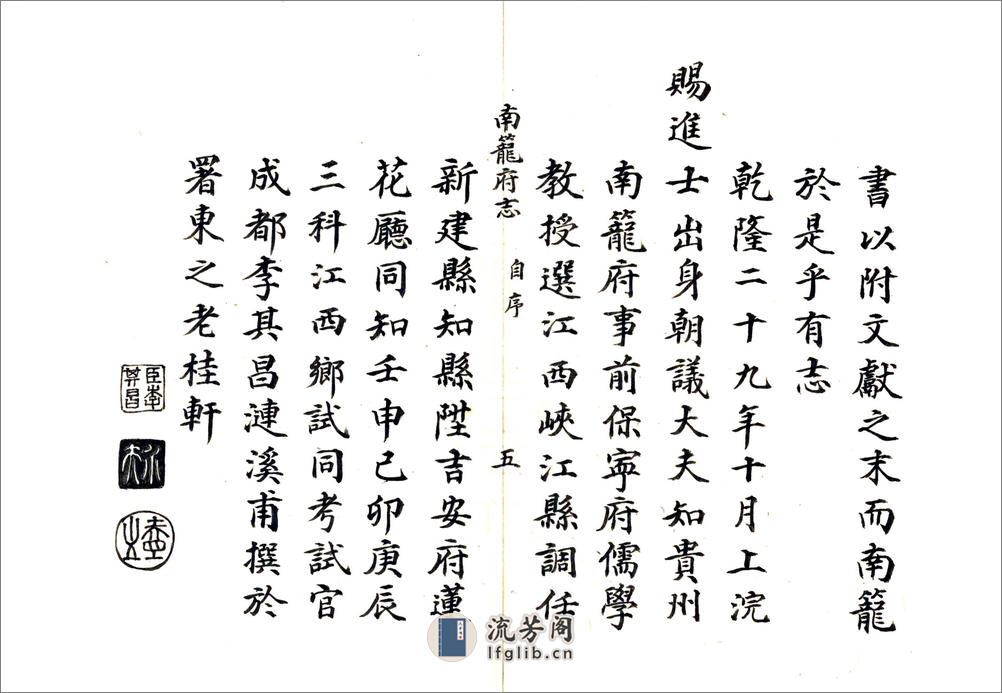 書以附文獻之末而南籠
於是乎有志
乾隆二十九年十月上浣
賜進士出身朝議大夫知貴州
南籠府事前保寧府儒學
教授選江西峽江縣調任
南籠府志 自序 五
新建縣知縣陞吉安府蓮
花廳同知壬申己卯庚辰
三科江西鄉試同考試官
成都李其昌漣溪甫撰於
署東之老桂軒
臣李其昌
流芳阁
lfglib.cn